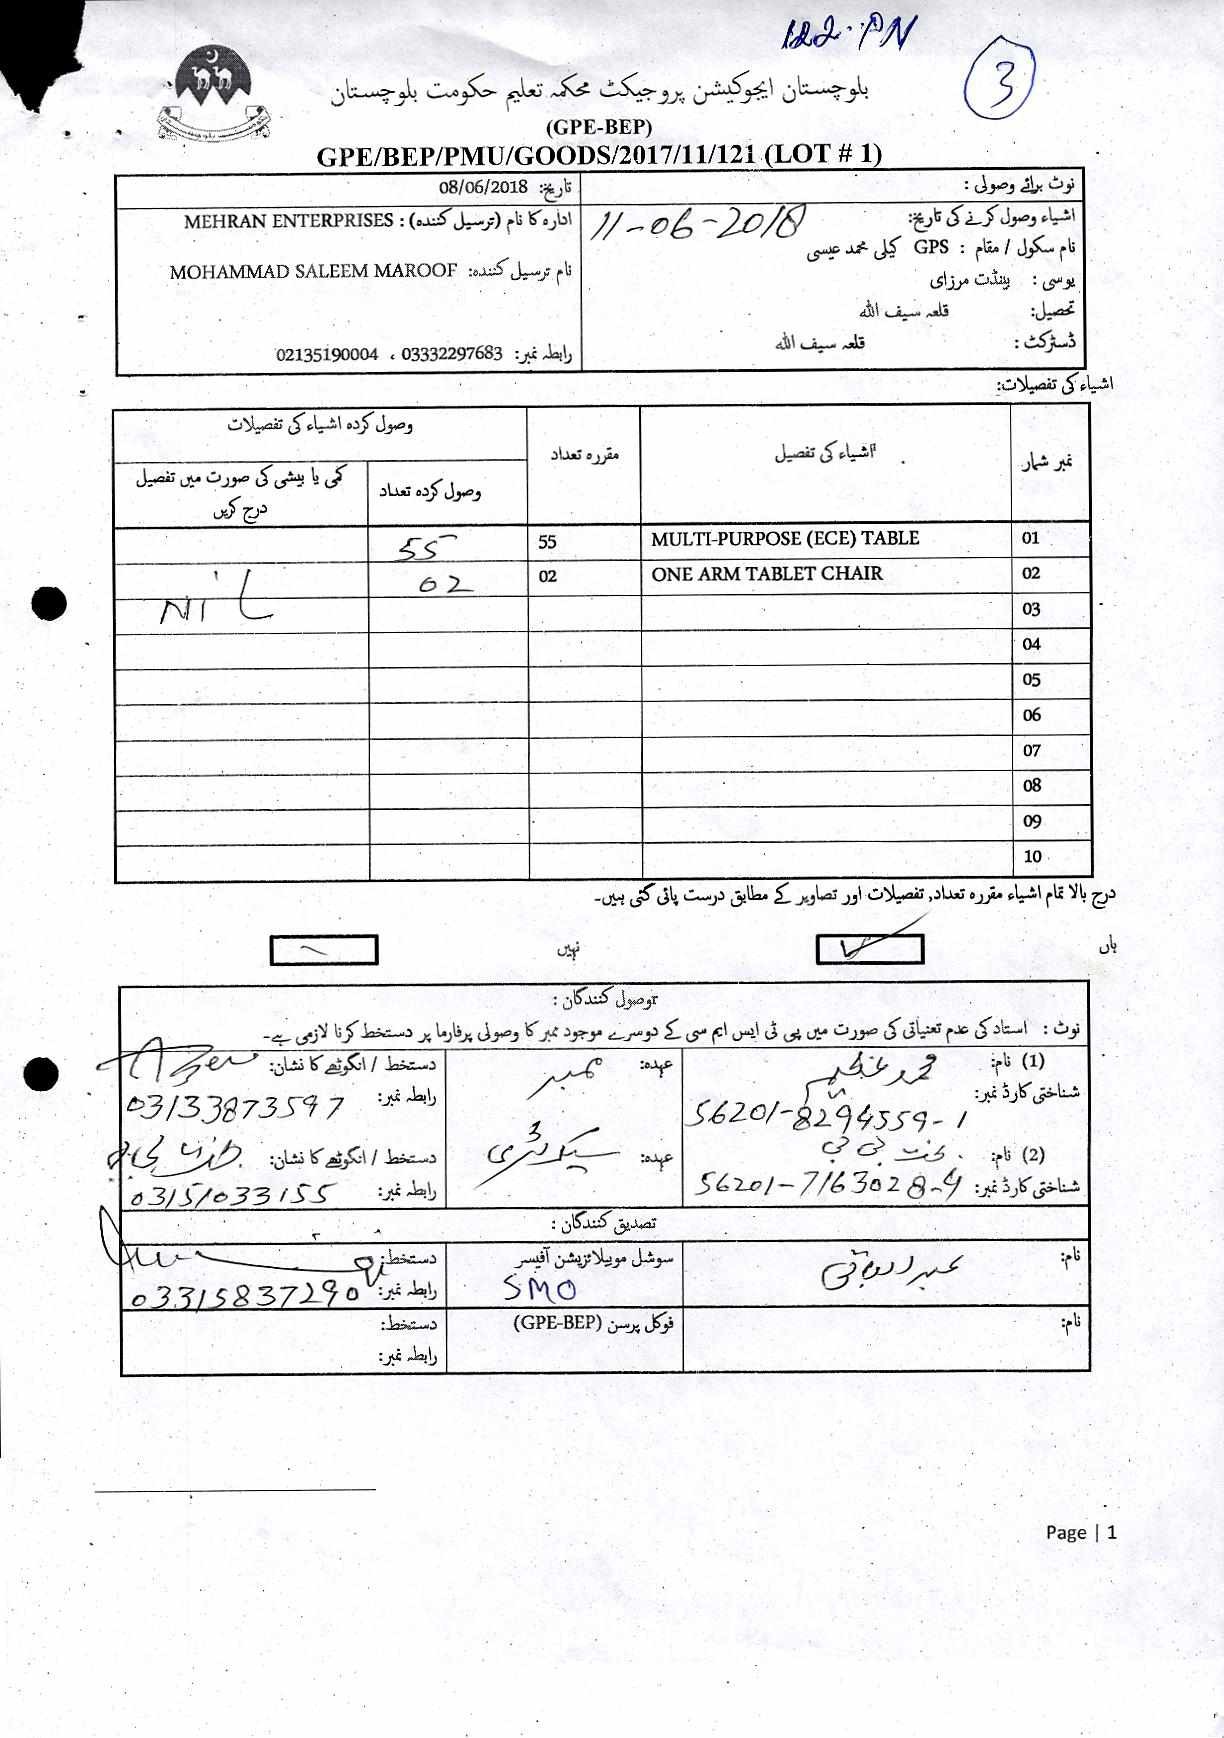 122-PN
3
بلوچستان ایجوکیشن پروجیکٹ محکمہ تعلیم حکومت بلوچستان
(GPE-BEP)
GPE/BEP/PMU/GOODS/2017/11/121 (LOT # 1)
نوٹ برائے وصولی :
اشیاء وصول کرنے کی تاریخ: 11-06-2018
نام سکول / مقام : GPS کیلی محمد عیسی
یوسی : پنڈت مرزای
تحصیل: قلعہ سیف اللہ
ڈسٹرکٹ : قلعہ سیف اللہ
تاریخ: 08/06/2018
ادارہ کا نام (ترسیل کنندہ) : MEHRAN ENTERPRISES
نام ترسیل کنندہ: MOHAMMAD SALEEM MAROOF
رابطہ نمبر: 03332297683 ، 02135190004
اشیاء کی تفصیلات:
نمبر شمار اشیاء کی تفصیل مقررہ تعداد وصول کردہ اشیاء کی تفصیلات
وصول کردہ تعداد کمی یا بیشی کی صورت میں تفصیل درج کریں
01 MULTI-PURPOSE (ECE) TABLE 55 55
02 ONE ARM TABLET CHAIR 02 02 NIL
03
04
05
06
07
08
09
10
درج بالا تمام اشیاء مقررہ تعداد, تفصیلات اور تصاویر کے مطابق درست پائی گئی ہیں۔
ہاں ✓ نہیں
وصول کنندگان :
نوٹ : استاد کی عدم تعنیاتی کی صورت میں پی ٹی ایس ایم سی کے دوسرے موجود ممبر کا وصولی پرفارما پر دستخط کرنا لازمی ہے۔
(1) نام: محمد عظیم عہدہ: ممبر دستخط / انگوٹھے کا نشان:
شناختی کارڈ نمبر: 56201-8294559-1 رابطہ نمبر: 03133873597
(2) نام: بخت بی بی عہدہ: سیکرٹری دستخط / انگوٹھے کا نشان:
شناختی کارڈ نمبر: 56201-7163028-4 رابطہ نمبر: 03151033155
تصدیق کنندگان :
نام: عبدالباقی سوشل موبیلائزیشن آفیسر دستخط:
SMO رابطہ نمبر: 03315837290
نام: فوکل پرسن (GPE-BEP) دستخط:
رابطہ نمبر:
Page | 1